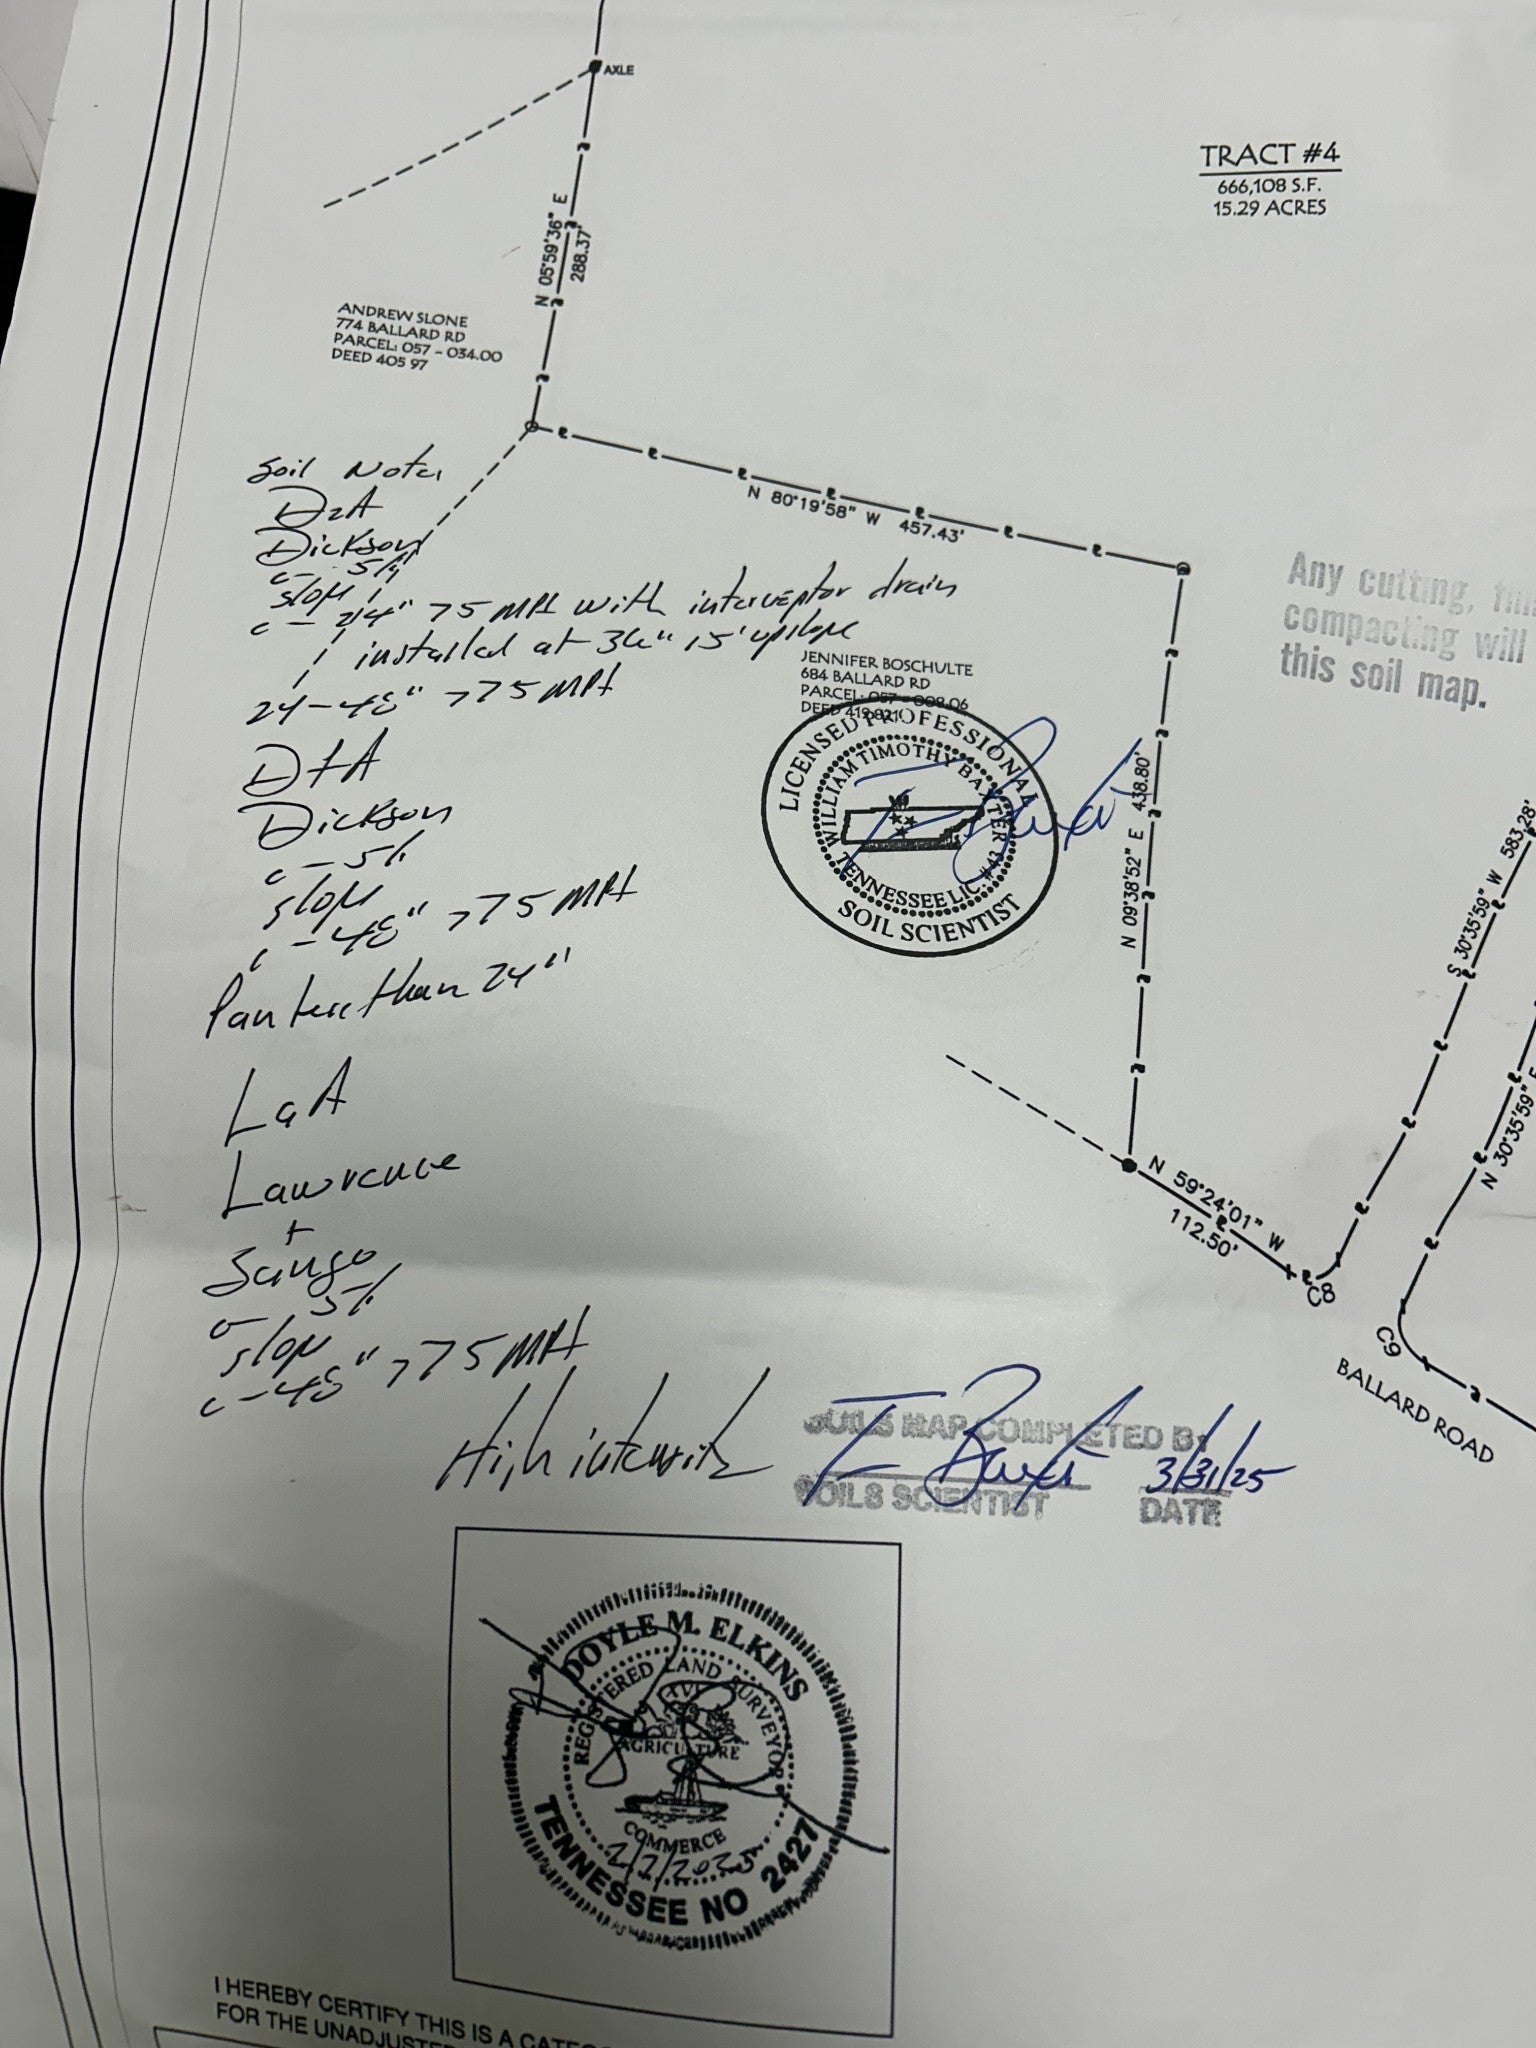 AXLE
TRACT #4
666,108 S.F.
15.29 ACRES
N 05°59'36" E
288.37'
ANDREW SLONE
774 BALLARD RD
PARCEL: 057 - 034.00
DEED 405 97
N 80°19'58" W 457.43'
Soil Notes
D2A
Dickson
0-5%
slope
0-24" 75 MPI with interceptor drain
installed at 36" 15' upslope
24-48" >75 MPI
D+A
Dickson
0-5%
slope
0-48" >75 MPI
Pan less than 24"
LaA
Lawrence
+
Sango
0-5%
slope
0-48" >75 MPI
High intensity
Any cutting,
compacting will
this soil map.
JENNIFER BOSCHULTE
684 BALLARD RD
PARCEL: 057 - 009.06
DEED 419 821
LICENSED PROFESSIONAL
WILLIAM TIMOTHY BAXTER
TENNESSEE LIC. #43
SOIL SCIENTIST
N 09°38'52" E 438.80'
S 30°35'59" W 583.28'
N 30°35'59" E
N 59°24'01" W
112.50'
C8
C9
BALLARD ROAD
SOILS MAP COMPLETED BY
3/31/25
SOILS SCIENTIST DATE
DOYLE M. ELKINS
REGISTERED LAND SURVEYOR
AGRICULTURE
COMMERCE
2/7/2025
TENNESSEE NO 2427
I HEREBY CERTIFY THIS IS A
FOR THE